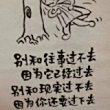 别和往事过不去
因为它已经过去
别和现实过不去
因为你还要过下去